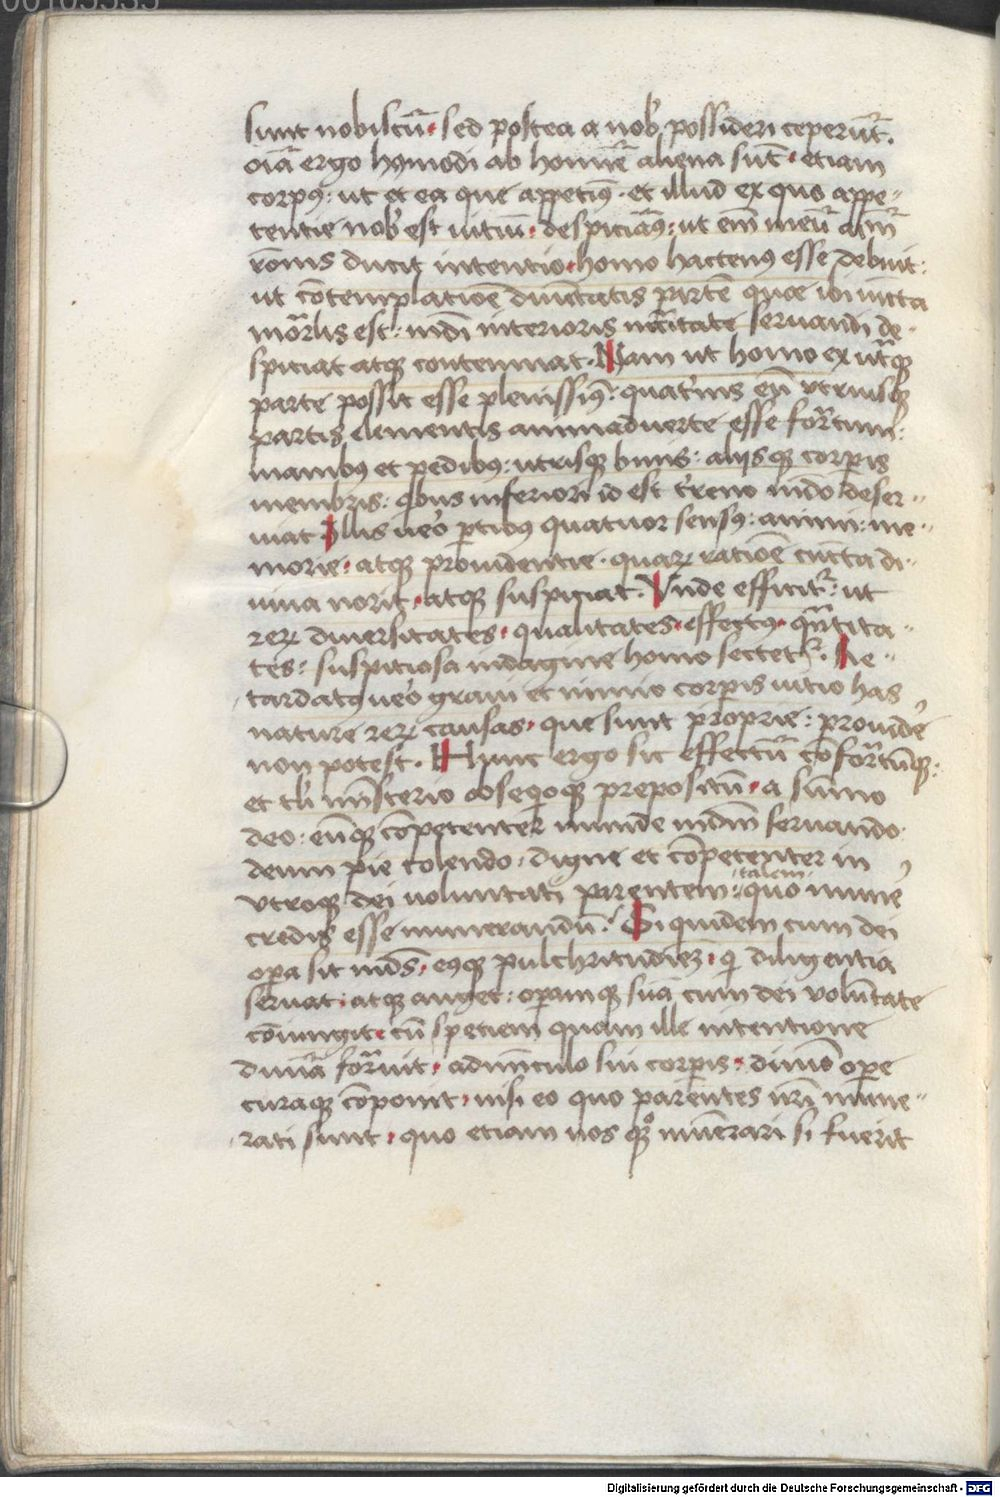 00103335
sunt nobiscū· sed postea a nob̕ possideri ceperūt̄.
oīa ergo hꝰmodi ab homīe aliena sūt· etiam
corpꝰ: ut et ea que appetimꝰ· et illud ex quo appe-
tentie nob̕ est uitiū· despiciāꝰ: ut eni meū aīm
rōnis ducit intentio· homo hactenꝰ esse debuit:
ut cōtemplatiōe diuītatis partē que ibi iūcta
mōrlis est: mūdi interioris nc̄citate seruandi de-
spiciat atqꝫ contemnat. Nam ut homo ex utrāqꝫ
parte possit esse plenissimꝰ: quat̕nis eū vtriusqꝫ
partis elementis animaduerte esse for̄tum:
manibꝰ et pedibꝰ: utrisqꝫ binis: alijsqꝫ corꝑis
membris: qbus inferiori id est t̕reno mūdo deser-
uiat Illis ueo ꝑtibꝰ quatuor sensꝰ: animi: me-
morie· atqꝫ prouidentie· quaꝝ ratiōe cūcta di-
uina norit· atqꝫ suspiciat. Vnde efficit̄· ut
reꝝ diuersitates· qualitates· effectꝰ· qn̄tita-
tes: suspitiosa indagine homo sectet̄. Re-
tardatqꝫ ueo graui et nimio corꝑis uitio has
nature reꝝ causas· que sunt proprie: prouide̕
non potest. Hunc ergo sic effectū cōfor̄tūqꝫ:
et tli mīsterio obseqioqꝫ prepositū· a sūmo
deo· eūqꝫ cōpetenter munde mūdū seruando·
deum pie colendo· digne et cōpetenter in
vtroqꝫ dei voluntati parentem: talem quo mune̕
credis esse munerandū? Siquidem cum dei
oꝑa sit mūdꝰ· eiꝰqꝫ pulchritudinez· qi diligentia
seruat· atqꝫ auget: oꝑamqꝫ suā cum dei volūtate
cōiungit· cū spetiem quam ille intentione
diuīa for̄uit· adiūculo sui corꝑis· diuīo oꝑe
curaqꝫ cōponit· nisi eo quo parentes nr̄i mune-
rati sunt· quo etiam nos qꝫꝫ munerari si fuerit
Digitalisierung gefördert durch die Deutsche Forschungsgemeinschaft - DFG